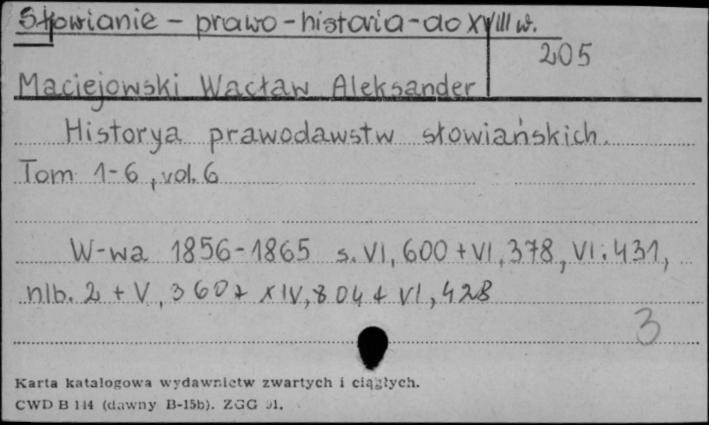 Słowianie - prawo - historia - do XVIII w.
205
Maciejowski Wacław Aleksander
Historya prawodawstw słowiańskich.
Tom 1-6, vol. 6
W-wa 1856-1865 s. VI, 600 + VI, 378, VI: 431,
nlb. 2 + V, 360 + XIV, 804 + VI, 428
3
Karta katalogowa wydawnictw zwartych i ciągłych.
CWD B 114 (dawny B-15b). ZGG 91.